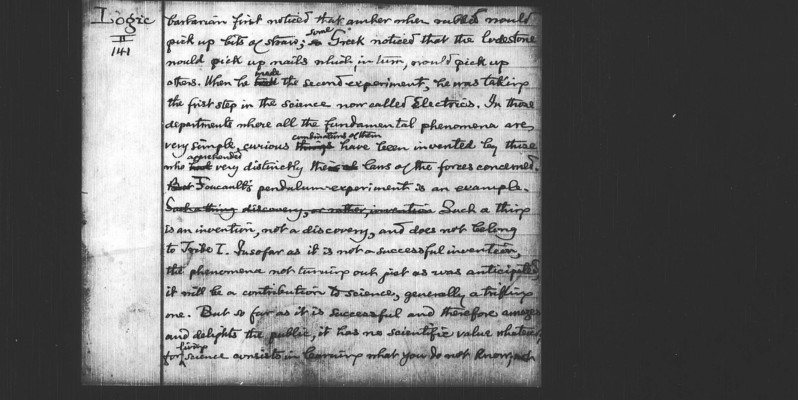 Logic
II
141
barbarian first noticed that amber when rubbed would
pick up bits of straw; some Greek noticed that the lodestone
would pick up nails which, in turn, would pick up
others. When he made the second experiment, he was taking
the first step in the science now called Electrics. In those
departments where all the fundamental phenomena are
very simple, curious combinations of them have been invented by those
who apprehended very distinctly the laws of the forces concerned.
Foucault's pendulum-experiment is an example.
Such a thing discovery, or rather, invention Such a thing
is an invention, not a discovery, and does not belong
to Tribe I. Insofar as it is not a successful invention,
the phenomena not turning out just as was anticipated,
it will be a contribution to science, generally a trifling
one. But so far as it is successful and therefore amazes
and delights the public, it has no scientific value whatever,
for living science consists in learning what you do not know, not